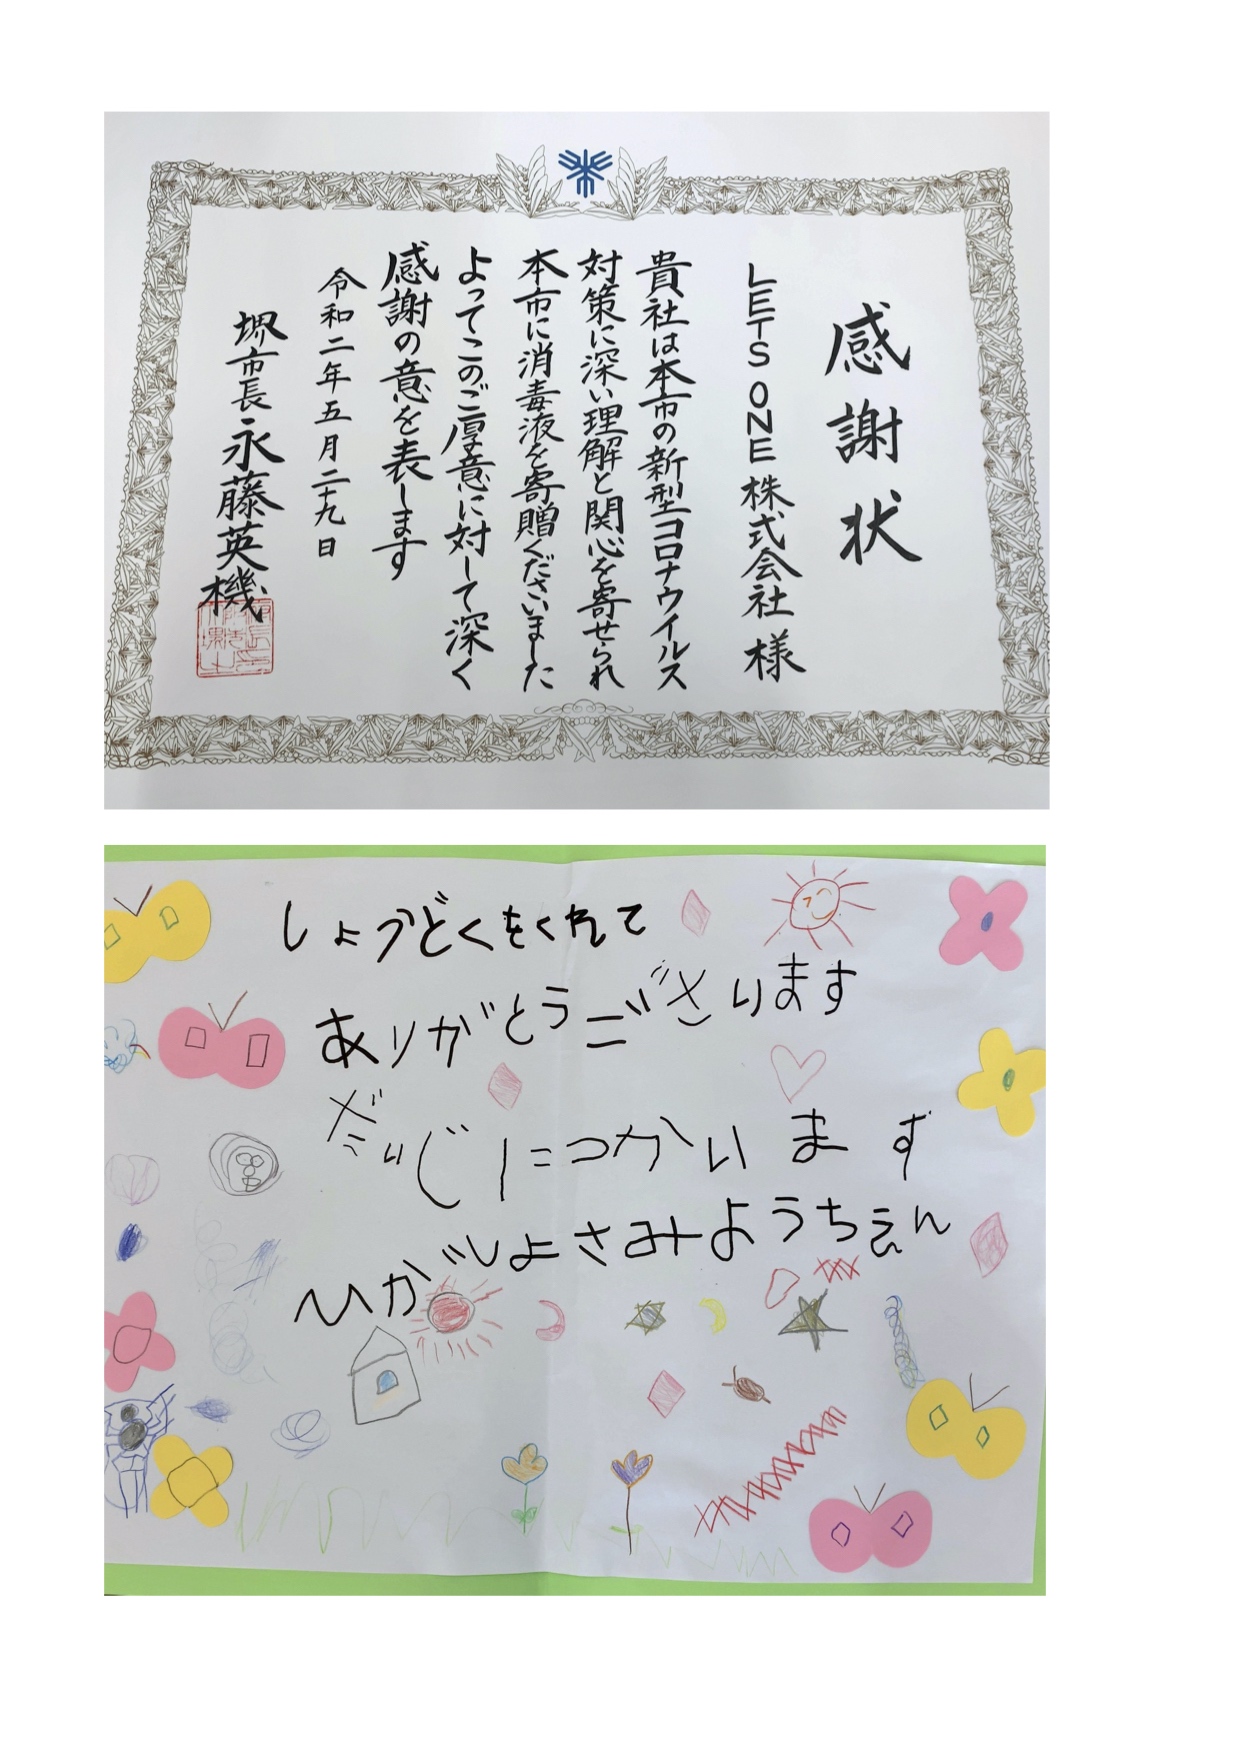 感謝状
LETS ONE 株式会社 様
貴社は本市の新型コロナウイルス
対策に深い理解と関心を寄せられ
本市に消毒液を寄贈くださいました
よってこのご厚意に対して深く
感謝の意を表します
令和二年五月二十九日
堺市長 永藤英機
しょうどくをくれて
ありがとうございります
だいじにつかいます
ひがしよさみようちえん